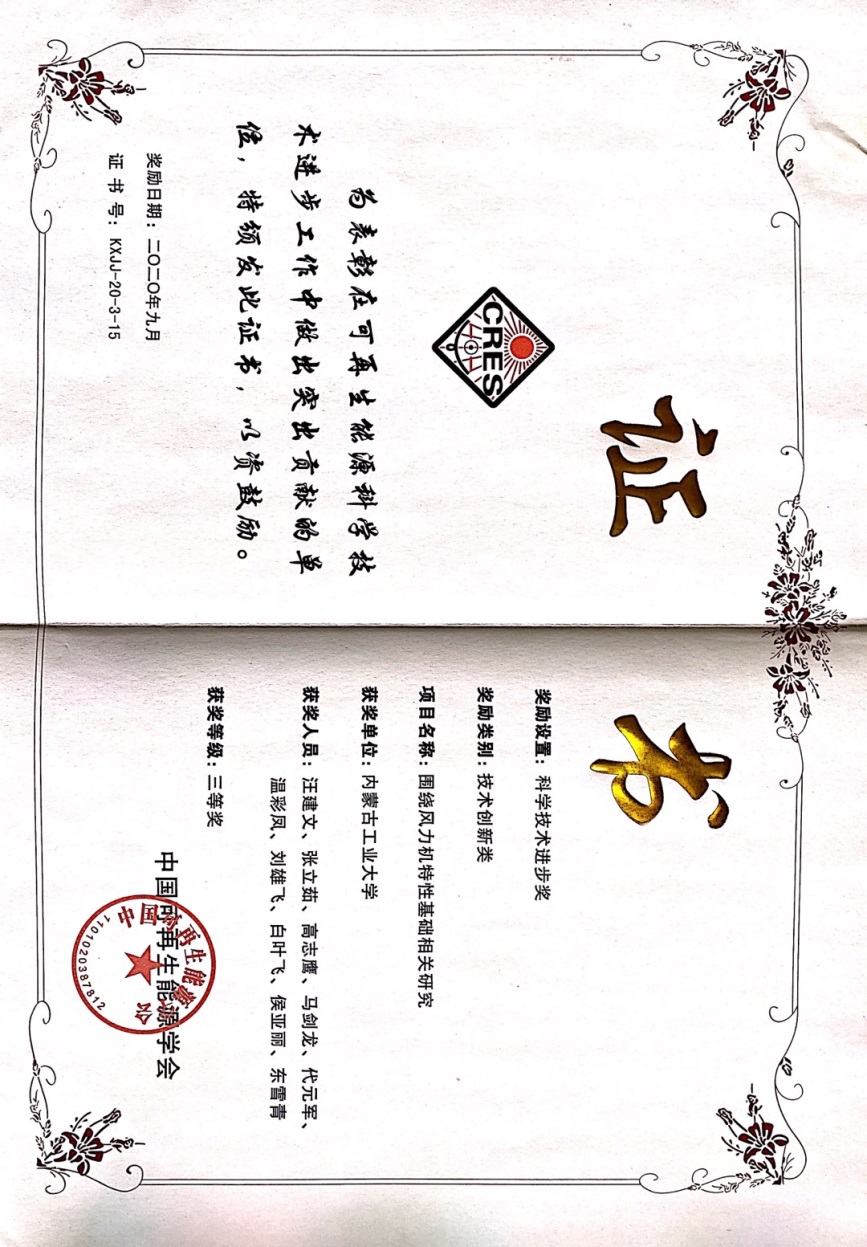 证书
CRES
为表彰在可再生能源科学技
术进步工作中做出突出贡献的单
位，特颁发此证书，以资鼓励。
奖励日期：二〇二〇年九月
证 书 号：KXJJ-20-3-15
奖励设置：科学技术进步奖
奖励类别：技术创新类
项目名称：围绕风力机特性基础相关研究
获奖单位：内蒙古工业大学
获奖人员：汪建文、张立茹、高志鹰、马剑龙、代元军、
温彩凤、刘雄飞、白叶飞、侯亚丽、东雪青
获奖等级：三等奖
中国可再生能源学会
中国可再生能源学会
1101020387812